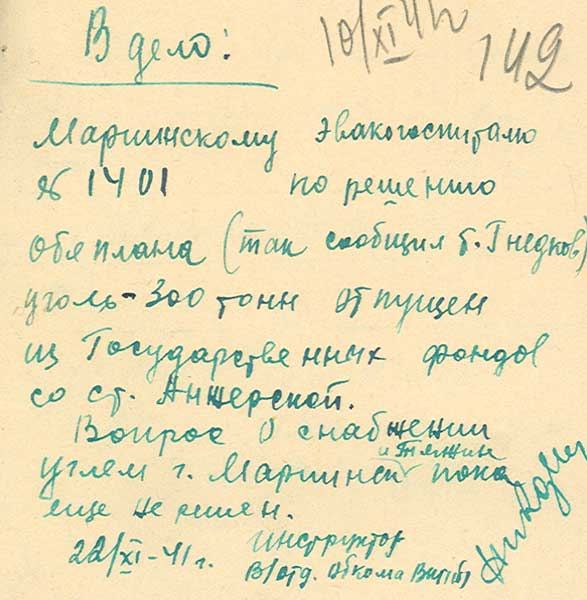 В дело:
10/XI 41г
142
Мариинскому эвакогоспиталю
№ 1401 по решению
Обл плана (так сообщил т. Гнедков)
уголь - 300 тонн отпущен
из Государственных фондов
со ст. Анжерской.
Вопрос о снабжении
и Тяжин
углем г. Мариинск пока
еще не решен.
22/XI-41 г. Инструктор
В/отд. Обкома ВКП(б)